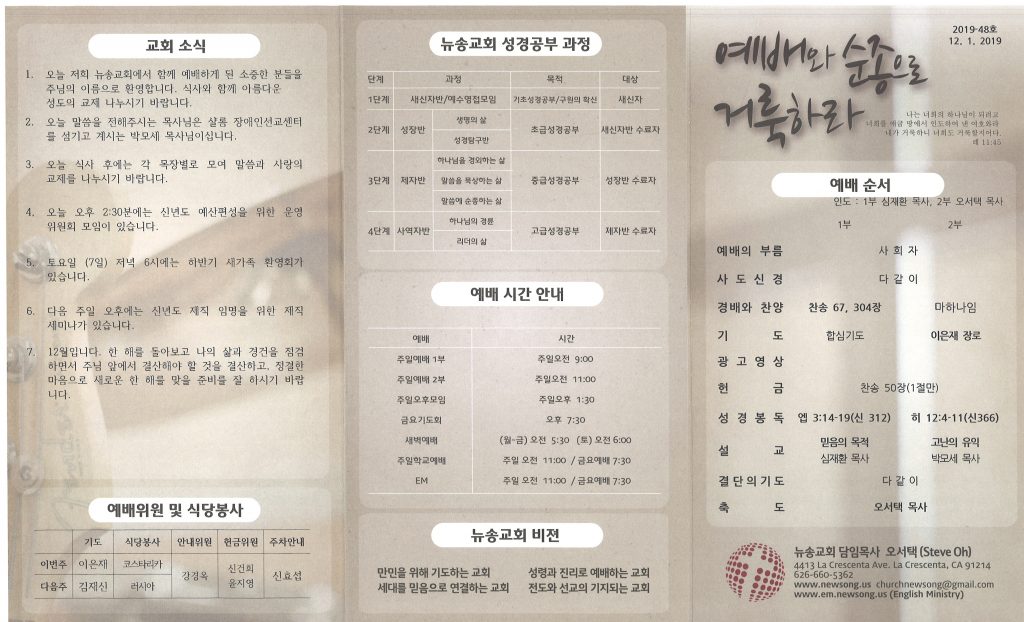 교회 소식
1. 오늘 저희 뉴송교회에서 함께 예배하게 된 소중한 분들을
주님의 이름으로 환영합니다. 식사와 함께 아름다운
성도의 교제 나누시기 바랍니다.
2. 오늘 말씀을 전해주시는 목사님은 샬롬 장애인선교센터
를 섬기고 계시는 박모세 목사님이십니다.
3. 오늘 식사 후에는 각 목장별로 모여 말씀과 사랑의
교제를 나누시기 바랍니다.
4. 오늘 오후 2:30분에는 신년도 예산편성을 위한 운영
위원회 모임이 있습니다.
5. 토요일 (7일) 저녁 6시에는 하반기 새가족 환영회가
있습니다.
6. 다음 주일 오후에는 신년도 제직 임명을 위한 제직
세미나가 있습니다.
7. 12월입니다. 한 해를 돌아보고 나의 삶과 경건을 점검
하면서 주님 앞에서 결산해야 할 것을 결산하고, 정결한
마음으로 새로운 한 해를 맞을 준비를 잘 하시기 바랍
니다.
예배위원 및 식당봉사
기도 식당봉사 안내위원 헌금위원 주차안내
이번주 이은재 코스타리카 강경옥 신건희 신효섭
다음주 김재신 러시아 윤지영
뉴송교회 성경공부 과정
단계 과정 목적 대상
1단계 새신자반/예수영접모임 기초성경공부/구원의 확신 새신자
2단계 성장반 생명의 삶 초급성경공부 새신자반 수료자
성경탐구반
하나님을 경외하는 삶
3단계 제자반 말씀을 묵상하는 삶 중급성경공부 성장반 수료자
말씀에 순종하는 삶
4단계 사역자반 하나님의 경륜 고급성경공부 제자반 수료자
리더의 삶
예배 시간 안내
예배 시간
주일예배 1부 주일오전 9:00
주일예배 2부 주일오전 11:00
주일오후모임 주일오후 1:30
금요기도회 오후 7:30
새벽예배 (월-금) 오전 5:30 (토) 오전 6:00
주일학교예배 주일 오전 11:00 / 금요예배 7:30
EM 주일 오전 11:00 / 금요예배 7:30
뉴송교회 비젼
만민을 위해 기도하는 교회 성령과 진리로 예배하는 교회
세대를 믿음으로 연결하는 교회 전도와 선교의 기지되는 교회
2019-48호
12. 1. 2019
예배와 순종으로
거룩하라
나는 너희의 하나님이 되려고
너희를 애굽 땅에서 인도하여 낸 여호와라
내가 거룩하니 너희도 거룩할지어다.
레 11:45
예배 순서
인도 : 1부 심재환 목사, 2부 오서택 목사
1부 2부
예배의 부름 사 회 자
사 도 신 경 다 같 이
경배와 찬양 찬송 67, 304장 마하나임
기 도 합심기도 이은재 장로
광 고 영 상
헌 금 찬송 50장(1절만)
성 경 봉 독 엡 3:14-19(신 312) 히 12:4-11(신366)
설 교 믿음의 목적 고난의 유익
심재환 목사 박모세 목사
결 단 의 기 도 다 같 이
축 도 오서택 목사
뉴송교회 담임목사 오서택 (Steve Oh)
4413 La Crescenta Ave. La Crescenta, CA 91214
626-660-5362
www.newsong.us churchnewsong@gmail.com
www.em.newsong.us (English Ministry)